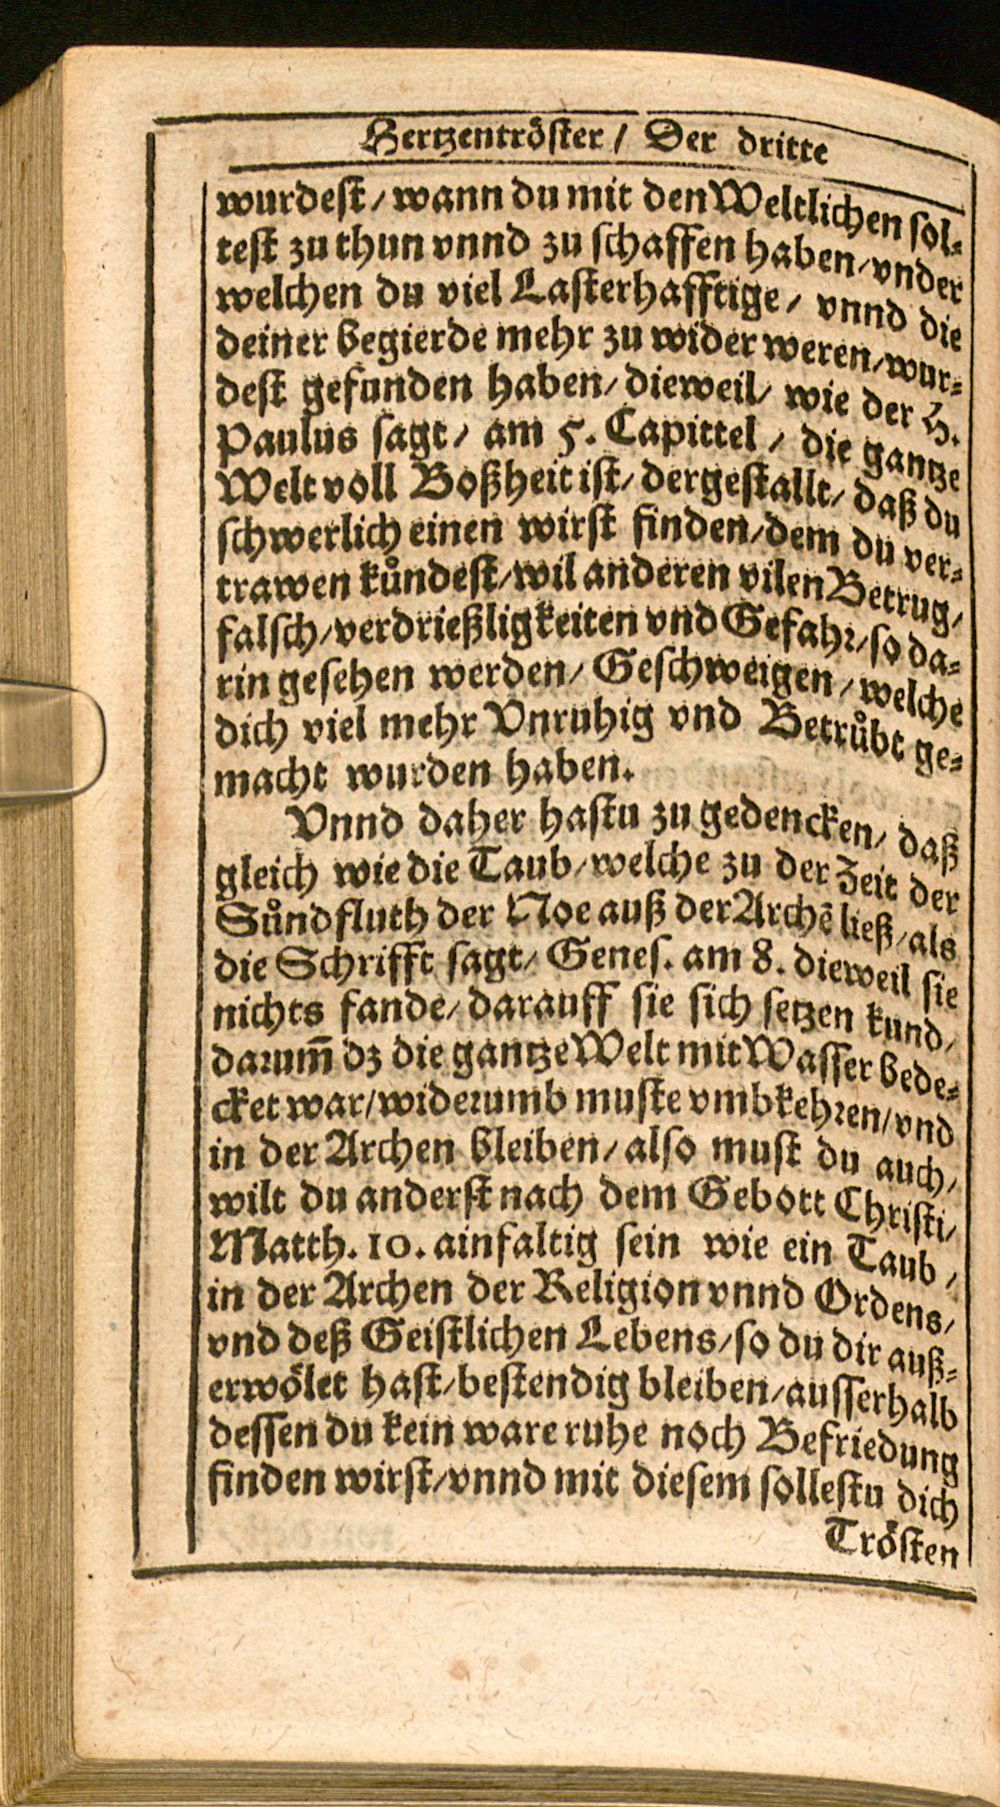 Hertzentröster / Der dritte
wurdest / wann du mit den Weltlichen sol-
test zu thun vnnd zu schaffen haben / vnder
welchen du viel Lasterhafftige / vnnd die
deiner begierde mehr zu wider weren / wur-
dest gefunden haben / dieweil / wie der H.
Paulus sagt / am 5. Capittel / die gantze
Welt voll Boßheit ist / dergestallt / daß du
schwerlich einen wirst finden / dem du ver-
trawen kůndest / wil anderen vilen Betrug /
falsch / verdrießligkeiten vnd Gefahr / so da-
rin gesehen werden / Geschweigen / welche
dich viel mehr Vnruhig vnd Betrůbt ge-
macht wurden haben.
Vnnd daher hastu zu gedencken / daß
gleich wie die Taub / welche zu der Zeit der
Sůndfluth der Noe auß der Archē ließ / als
die Schrifft sagt / Genes. am 8. dieweil sie
nichts fande / darauff sie sich setzen kund /
darum̄ dz die gantze Welt mit Wasser bede-
cket war / widerumb muste vmbkehren / vnd
in der Archen bleiben / also must du auch /
wilt du anderst nach dem Gebott Christi /
Matth. 10. ainfaltig sein wie ein Taub /
in der Archen der Religion vnnd Ordens /
vnd deß Geistlichen Lebens / so du dir auß-
erwölet hast / bestendig bleiben / ausserhalb
dessen du kein ware ruhe noch Befriedung
finden wirst / vnnd mit diesem sollestu dich
Trösten